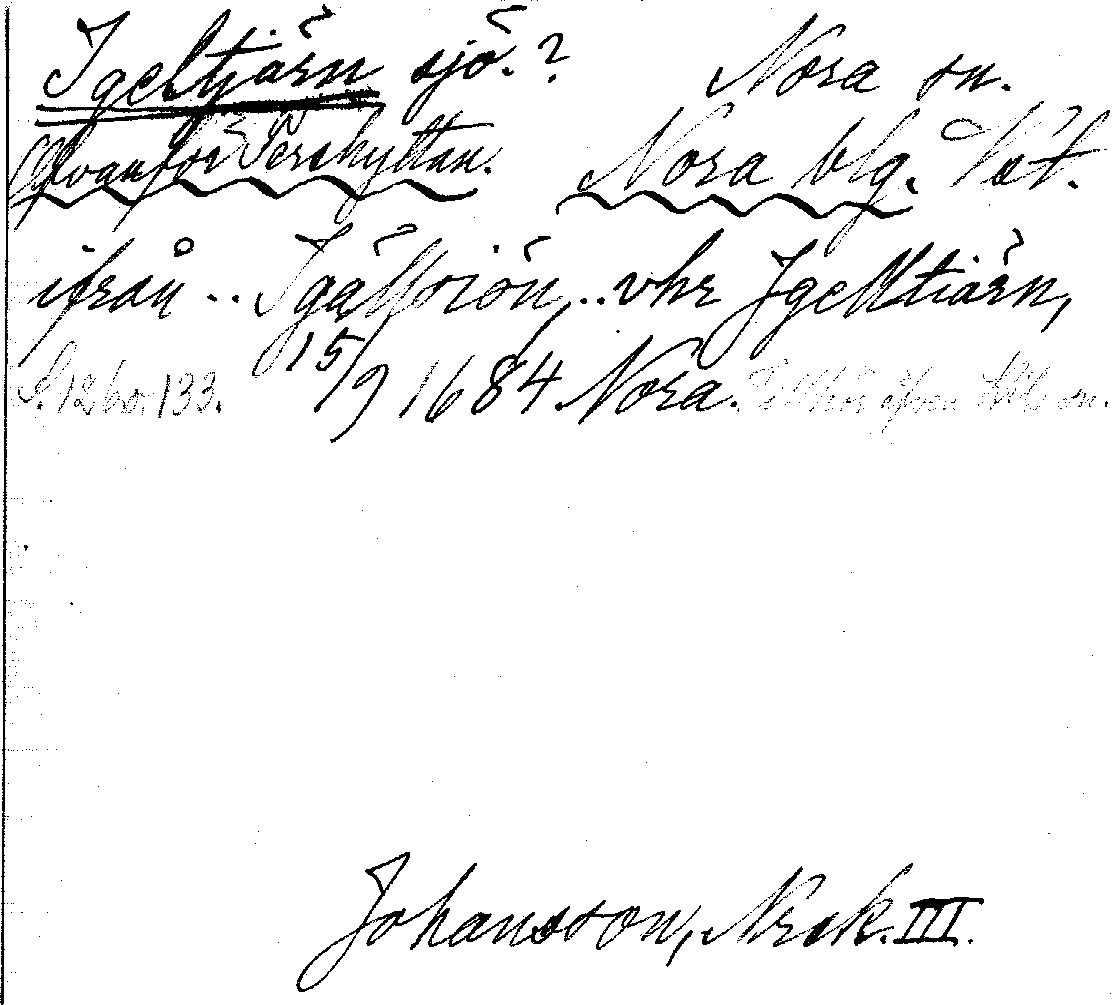 Igeltjärn sjö.? Nora sn.
Ofvanför Pershyttan. Nora blg. Väst.
ifrån .. Igällsiön, .. vhr Jgelltiärn,
S. 126 133. 15/9 1684. Nora.
Johansson, Nrck. III.